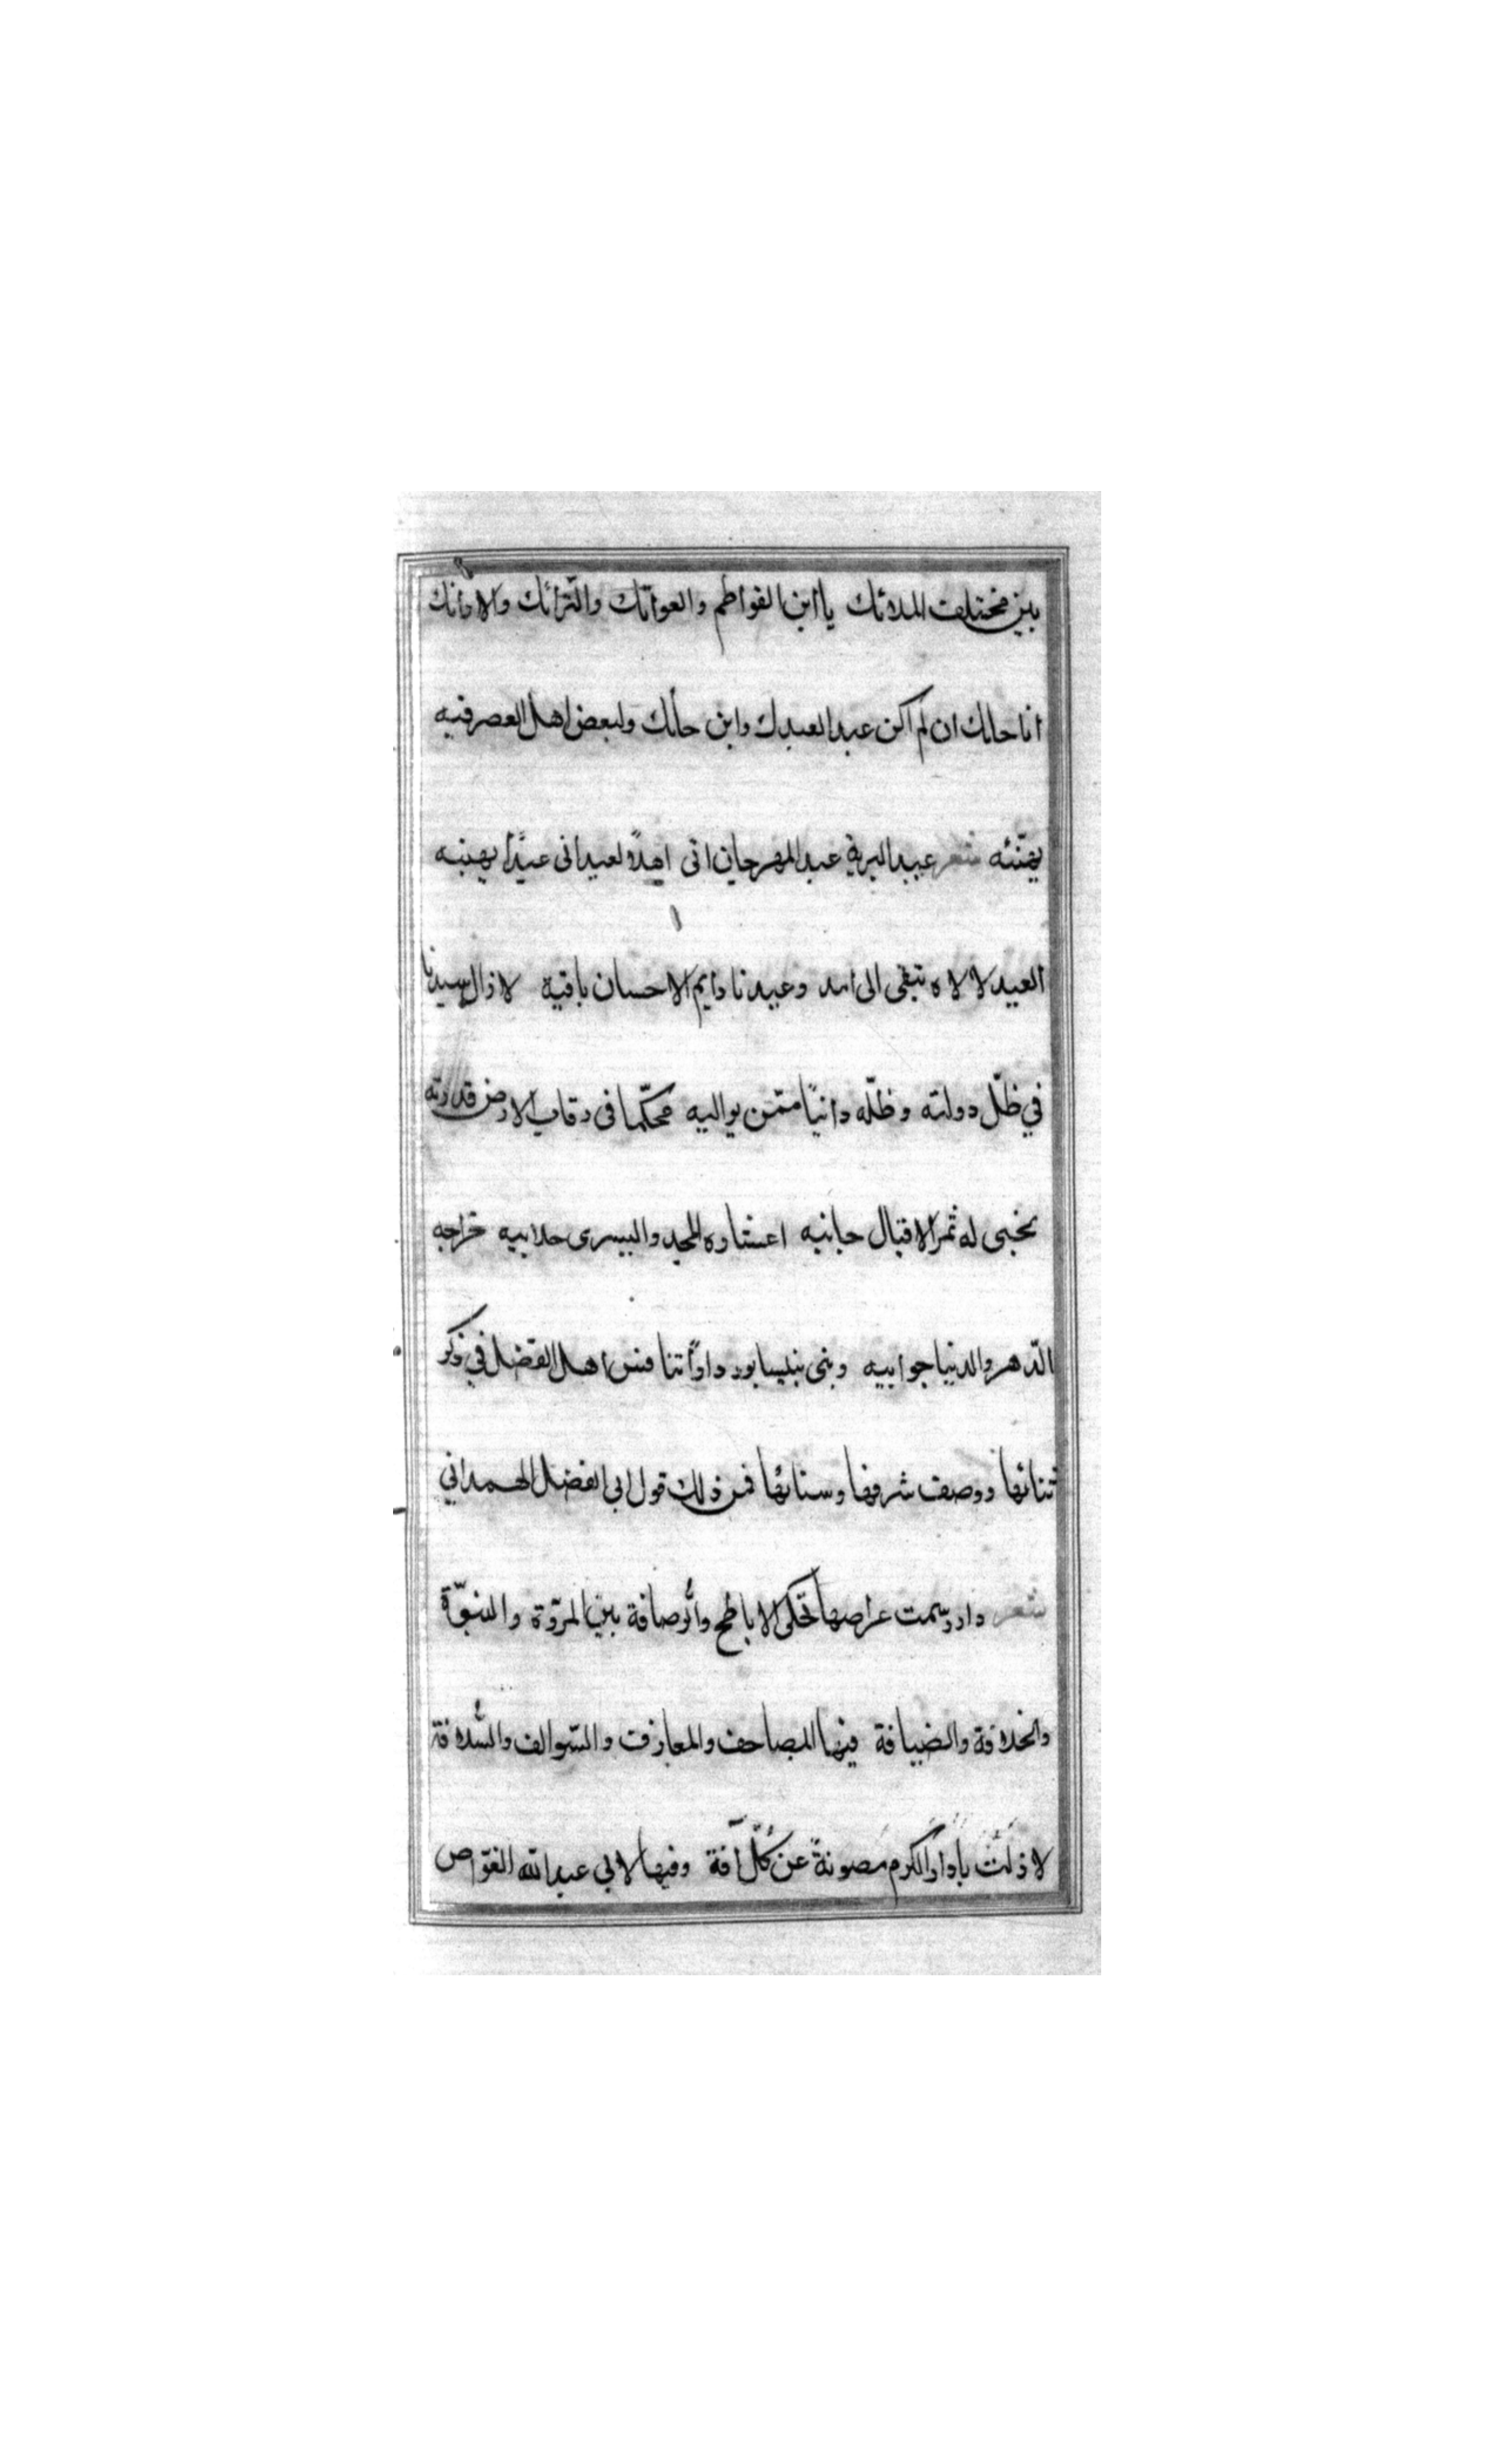 بين مختلف الملائك يا ابن الفواطم والعواتك والترائك والارائك
انا حائك ان لم اكن عبدا لعبدك وابن حائك ولبعض اهل العصر فيه
يهنّئه شعر عبيد البرية عبد المهرجان اتى اهلاً لعيد اتى عيداً يهنيه
العيد لالاه تبقى الى امد وعيدنا دايم الاحسان باقيه لا زال سيدنا
في ظلّ دولته وظلّه دانياً ممّن يواليه محكّما فى رقاب الارض قدرته
يجبى له ثمر الاقبال جانيه اعشاره المجد واليسرى جلابيه خراجه
الدّهر والدنيا جوابيه وبنى بنيسابور داراً تنافس اهل الفضل في ذكر
ثنائها ووصف شرفها وسنائها فمن ذلك قول ابى الفضل الهمداني
شعر دار وسّمت عراصها تحكى الاباطح والرُّصافة بين المروّة والنبوّة
والخلافة والضيافة فيها المصاحف والمعازف والسّوالف والسُّلافة
لا زلت يا دار الكرم مصونةً عن كُلّ آفة وفيها لابي عبد الله الغوّاص